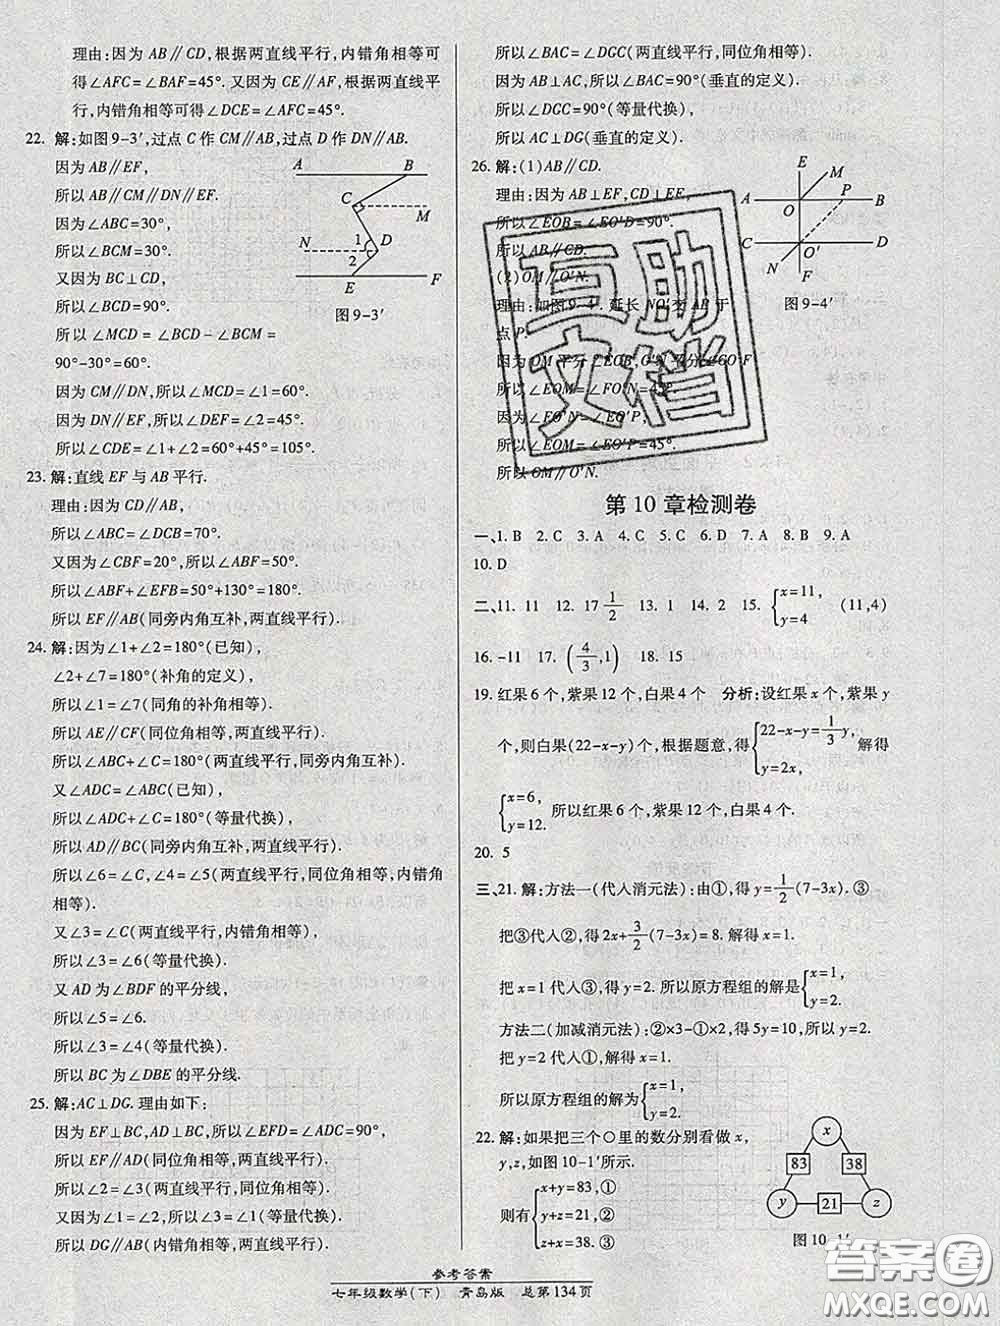 理由:因为 AB∥CD,根据两直线平行,内错角相等可
得∠AFC=∠BAF=45°. 又因为 CE∥AF,根据两直线平
行,内错角相等可得∠DCE=∠AFC=45°.
22. 解:如图 9-3′,过点 C 作 CM∥AB,过点 D 作 DN∥AB.
因为 AB∥EF,
所以 AB∥CM∥DN∥EF.
因为∠ABC=30°,
所以∠BCM=30°.
又因为 BC⊥CD,
所以∠BCD=90°.
所以∠MCD=∠BCD-∠BCM=
90°-30°=60°.
因为 CM∥DN,所以∠MCD=∠1=60°.
因为 DN∥EF,所以∠DEF=∠2=45°.
所以∠CDE=∠1+∠2=60°+45°=105°.
A B C M 1 N D 2 E F
图 9-3′
23. 解:直线 EF 与 AB 平行.
理由:因为 CD∥AB,
所以∠ABC=∠DCB=70°.
又因为∠CBF=20°,所以∠ABF=50°.
所以∠ABF+∠EFB=50°+130°=180°.
所以 EF∥AB(同旁内角互补,两直线平行).
24. 解:因为∠1+∠2=180°(已知),
∠2+∠7=180°(补角的定义),
所以∠1=∠7(同角的补角相等).
所以 AE∥CF(同位角相等,两直线平行).
所以∠ABC+∠C=180°(两直线平行,同旁内角互补).
又∠ADC=∠ABC(已知),
所以∠ADC+∠C=180°(等量代换),
所以 AD∥BC(同旁内角互补,两直线平行).
所以∠6=∠C,∠4=∠5(两直线平行,同位角相等,内错角
相等).
又∠3=∠C(两直线平行,内错角相等),
所以∠3=∠6(等量代换).
又 AD 为∠BDF 的平分线,
所以∠5=∠6.
所以∠3=∠4(等量代换).
所以 BC 为∠DBE 的平分线.
25. 解:AC⊥DG. 理由如下:
因为 EF⊥BC,AD⊥BC,所以∠EFD=∠ADC=90°,
所以 EF∥AD(同位角相等,两直线平行).
所以∠2=∠3(两直线平行,同位角相等).
又因为∠1=∠2,所以∠1=∠3(等量代换).
所以 DG∥AB(内错角相等,两直线平行).
所以∠BAC=∠DGC(两直线平行,同位角相等).
因为 AB⊥AC,所以∠BAC=90°(垂直的定义).
所以∠DGC=90°(等量代换),
所以 AC⊥DG(垂直的定义).
26. 解:(1)AB∥CD.
理由:因为 AB⊥EF,CD⊥EF,
所以∠EOB=∠EO′D=90°.
所以 AB∥CD.
(2)OM∥O′N.
理由:如图 9-4′,延长 NO′交 AB 于
点 P.
因为 OM 平分∠EOB,O′N 平分∠CO′F
所以∠EOM=∠FO′N=45°.
因为∠FO′N=∠EO′P,
所以∠EOM=∠EO′P=45°.
所以 OM∥O′N.
E M P A O B C O′ D N F
图 9-4′
互助
文档
第 10 章检测卷
一、1. B 2. C 3. A 4. C 5. C 6. D 7. A 8. B 9. A
10. D
二、11. 11 12. 17 1/2 13. 1 14. 2 15. {x=11, y=4 (11,4)
16. -11 17. (4/3,1) 18. 15
19. 红果 6 个,紫果 12 个,白果 4 个 分析:设红果 x 个,紫果 y
个,则白果(22-x-y)个,根据题意,得{22-x-y=1/3 y, y=2x, 解得
{x=6, y=12. 所以红果 6 个,紫果 12 个,白果 4 个.
20. 5
三、21. 解:方法一(代入消元法):由①,得 y=1/2(7-3x). ③
把③代入②,得 2x+3/2(7-3x)=8. 解得 x=1.
把 x=1 代入③,得 y=2. 所以原方程组的解是{x=1, y=2.
方法二(加减消元法):②×3-①×2,得 5y=10,所以 y=2.
把 y=2 代入①,解得 x=1.
所以原方程组的解为{x=1, y=2.
22. 解:如果把三个○里的数分别看做 x,
y,z,如图 10-1′所示.
则有{x+y=83,① y+z=21,② z+x=38. ③
x 83 38 y 21 z
图 10-1′
参考答案
七年级数学(下) 青岛版 总第 134 页
答案圈
MXQE.COM